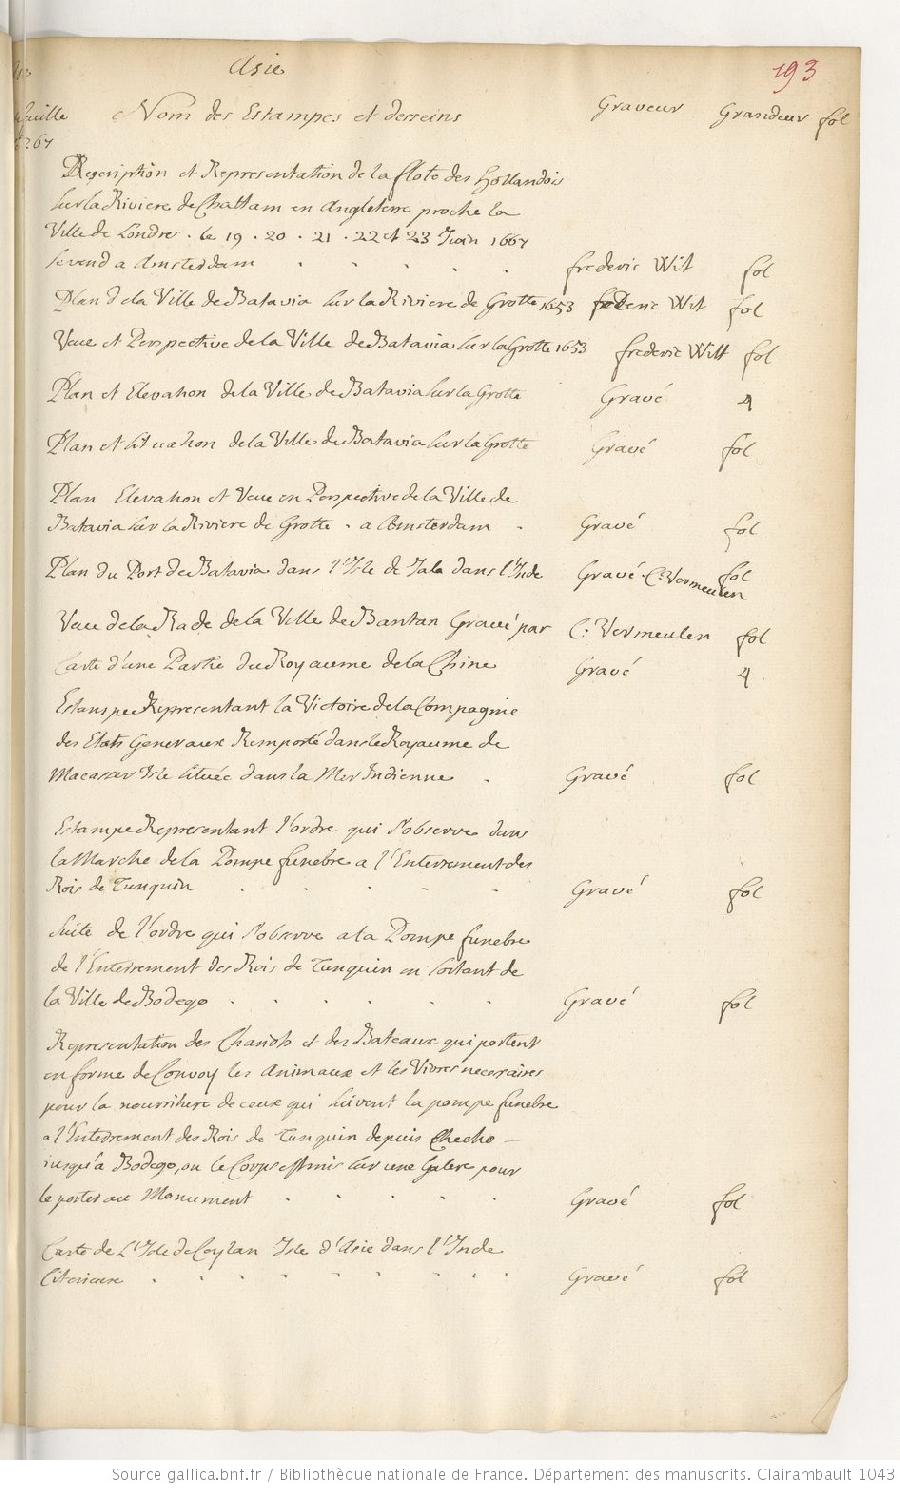 Asie
193
feuille Nom des Estampes et desseins Graveur Grandeur fol
267
Description et Representation de la flote des Hollandois
sur la Riviere de Chattam en Angleterre proche la
Ville de Londre . le 19 . 20 . 21 . 22 et 23 Juin 1667
se vend a Amsterdam . . . . . frederic Wit fol
Plan de la Ville de Batavia sur la Riviere de Grotte 1653 frederic Wit fol
Veue et Perspective de la Ville de Batavia sur la Grotte 1653 frederic Witt fol
Plan et Elevation de la Ville de Batavia sur la Grotte Gravé 4
Plan et situation de la Ville de Batavia sur la Grotte Gravé fol
Plan Elevation et Veue en Perspective de la Ville de
Batavia sur la Riviere de Grotte . a Amsterdam . Gravé fol
Plan du Port de Batavia dans l'Isle de Jala dans l'Inde Gravé C. Vermeulen fol
Veue de la Rade de la Ville de Bantan Gravé par C: Vermeulen fol
Carte d'une Partie du Royaume de la Chine Gravé 4
Estampe Representant la Victoire de la Compagnie
des Etats Generaux Remporté dans le Royaume de
Macasar Isle située dans la Mer Indienne . Gravé fol
Estampe Representant l'ordre qui s'observe dans
la Marche de la Pompe funebre a l'Enterrement des
Rois de Tunquin . . . . . Gravé fol
Suite de l'ordre qui s'observe a la Pompe funebre
de l'Enterrement des Rois de Tunquin en sortant de
la Ville de Bodego . . . . . . Gravé fol
Representation des Chariots et des Bateaux qui portent
en forme de Convoy les animaux et les Vivres necessaires
pour la nourriture de ceux qui suivent la pompe funebre
a l'Enterrement des Rois de Tunquin depuis Checho –
jusqu'a Bodego, ou le Corps est mis sur une Galere pour
le porter au Monument . . . . . Gravé fol
Carte de L'Isle de Ceylan Isle d'Asie dans l'Inde
Citerieure . . . . . . . . Gravé fol
Source gallica.bnf.fr / Bibliothèque nationale de France. Département des manuscrits. Clairambault 1043